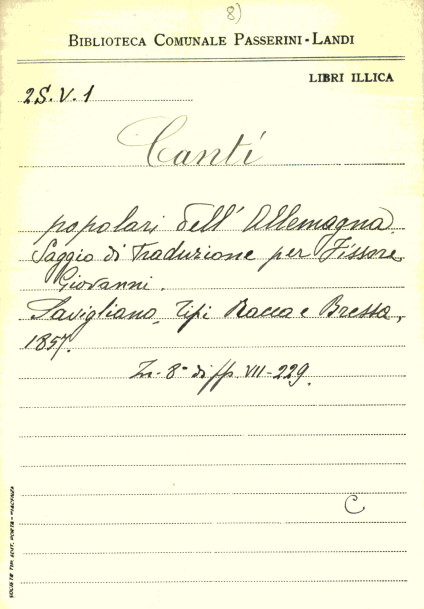 8)
BIBLIOTECA COMUNALE PASSERINI-LANDI
LIBRI ILLICA
2S.V.1
Canti
popolari dell' Allemagna.
Saggio di Traduzione per Fissore
Giovanni.
Savigliano, Tipi Racca e Bressa,
1857.
In-8° di pp. VII-229.
C